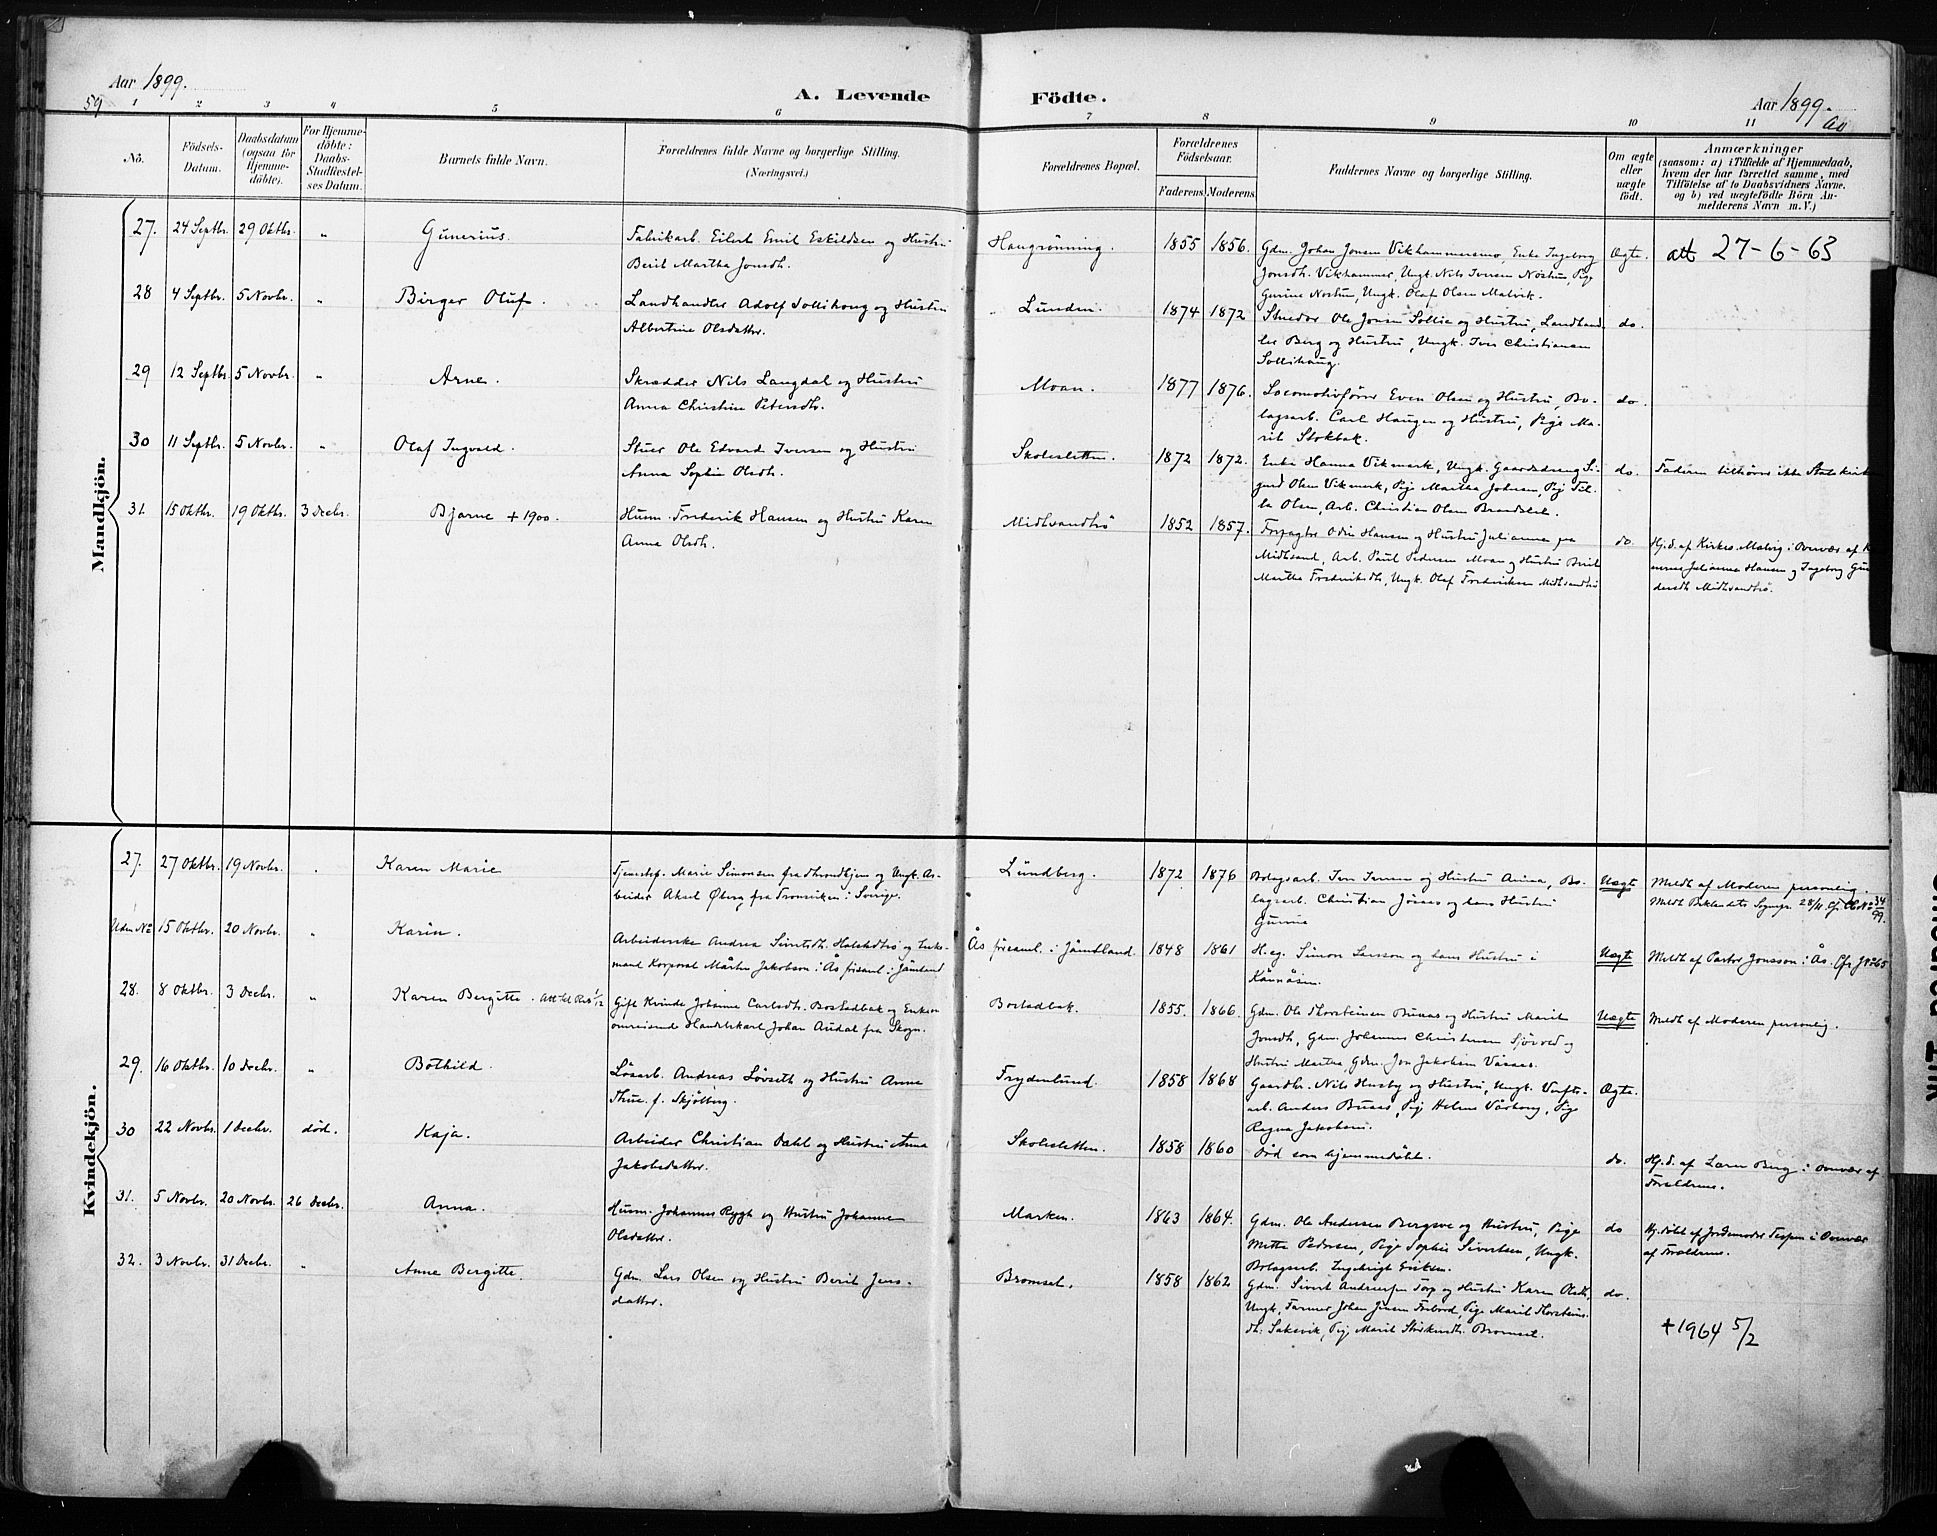 Aar 1899.
59
A. Levende Födte.
Aar 1899.
60
1 2 3 4 5 6 7 8 9 10 11
No.
Födsels-Datum.
Daabsdatum (ogsaa for Hjemme-döbte).
For Hjemme-döbte: Daabs-Stadfæstel-ses Datum.
Barnets fulde Navn.
Forældrenes fulde Navne og borgerlige Stilling. (Næringsvei.)
Forældrenes Bopæl.
Forældrenes Födselsaar.
Faderens Moderens
Faddernes Navne og borgerlige Stilling.
Om ægte eller uægte födt.
Anmærkninger
(saasom: a) i Tilfælde af Hjemmedaab,
hvem der har forrettet samme, med
Tilföielse af to Daabsvidners Navne.
og b) ved uægtefödte Börn An-
melderens Navn m. V.)
Mandkjön.
27. 24 Septbr. 29 Oktbr. " Gunerius. Fabrikarb. Eilert Emil Eskildsen og Hustru
Berit Martha Jonsdh.
Haugrønning. 1855 1856. Gdm. Johan Jonsen Vikhammersmo, Enke Ingeborg
Jonsdh. Vikhammer, Ungk. Nils Iversen Nöstum, Pige
Gurine Nostun, Ungk. Olaf Olsen Malvik.
Ægte. att 27-6-63
28 4 Septbr. 5 Novbr. " Birger Oluf. Landhandler Adolf Sollihoug og Hustru
Albertine Olsdatter.
Lunden. 1874 1872 Stuedor Ole Jonsen Sollie og Hustru, Landhand-
ler Berg og Hustru, Ungk. Iver Christiansen
Sollihaug.
do.
29 12 Septbr. 5 Novbr. " Arne. Skrædder Nils Langdal og Hustru
Anna Christine Petersdh.
Moan. 1877 1876. Locomotivförer Even Olsen og Hustru, Bo-
lagsarb. Carl Haugen og Hustru, Pige Ma-
rit Stokbak.
do.
30 11 Septbr. 5 Novbr. " Olaf Ingvald. Stuer Ole Edvard Iversen og Hustru
Anna Sophie Olsdh.
Skoleslettm. 1872 1872. Enke Hanna Vikmark, Ungk. Gaardsdreng Si-
gurd Olsen Vikmark, Pige Martha Johnsen, Pige Til-
la Olsen, Arb. Christian Olsen Brandslet.
do. Faderen tilhörer ikke Statskirk
31. 15 Oktbr. 19 Oktbr. 3 Decbr. Bjarne + 1900. Husm. Frederik Hansen og Hustru Karen
Anna Olsdh.
Midtsandtrö 1852 1857. Forpagter Odin Hansen og Hustru Julianna paa
Midtsand, Arb. Paul Pedersen Moan og Hustru Berit
Martha Frederiksdh, Ungk. Olaf Frederiksen Midtsandtrö
do. Hj.d. af Kirkes. Malvig i Overvær af
Julianna Hansen og Ingeborg
Midtsandtrö.
Kvindekjön.
27. 27 Oktbr. 19 Novbr. " Karen Marie Tjenestep. Marie Simonsen fra Throndhjem og Ungk. Ar-
beider Aksel Öberg fra i Sverige.
Lundberg. 1872 1876 Bolagsarb. Iver Iversen og Hustru Anna, Bo-
lagsarb. Christian Jösaas og hans Hustru
Gurine
Uægte Meldt af Moderen personlig.
Meldt Baklandets Sognepr. 28/11 Cfr. No 34/99.
Uden No 15 Oktbr. 20 Novbr. " Karin. Arbeiderske Andrea Sivertsdh. Halstadtrö og Enke-
mand Korporal Mårten Jakobson i Ås församl. i Jämtland
Ås församl. i Jämtland. 1848 1861 H.eg. Simon Larsson og hans Hustru i
Kännåsen.
Uægte Meldt af Pastor Jonsson i Ås. Cfr J No 65
28. 8 Oktbr. 3 Decbr. " Karen Bergitte. Gift Kvinde Johanna Carlsdh. Bostadbak og Enkem
omreisende Handelskarl Johan Audal fra Skogn.
Bostadbak. 1855. 1866. Gdm. Ole Thorsteinsen Buaas og Hustru Marit
Jonsdh, Gdm. Johannes Christensen Sjövold og
Hustru Martha, Gdm. Jon Jakobsen Væsaas.
Uægte Meldt af Moderen personlig.
29. 16 Oktbr. 10 Decbr. " Bothild. Lösarb. Andreas Lövseth og Hustru Anne
Thue. f. Skjölberg.
Frydenlund. 1858 1868 Gaardbr. Nils Husby og Hustru, Ungk. Verfts-
arb. Anders Buaas, Pige Helene Vårborg, Pige
Ragna Jakobsen.
Ægte.
30 22 Novbr. 1 Decbr. död. Kaja. Arbeider Christian Dahl og Hustru Anna
Jakobsdatter.
Skoleslettm. 1858 1860 Död som hjemmedöbt.
do. Hj.d. af Lærer Berg i Overvær af
Forældrene.
31. 5 Novbr. 20 Novbr. 26 Decbr. Anna. Husm. Johannes Rygh og Hustru Johanna
Olsdatter.
Marken. 1863 1864. Gdm. Ole Andersen Bergsve og Hustru, Pige
Mette Pedersen, Pige Sophie Sivertsen, Ungk.
Bolagsarb. Ingebrigt Eriksen.
do Hj.döbt af Jordemoder i Overvær
af Forældrene.
32. 3 Novbr. 31 Decbr. " Anne Bergitte. Gdm. Lars Olsen og Hustru Berit Jens-
datter.
Bromset. 1858 1862 Gdm. Sivert Andreassen Torp og Hustru Karen Olsdh,
Ungk. Farmer Johan Jensen Forbord, Pige Marit Thorsteins-
dh. Saksvik, Pige Marit Bromset.
do.
+ 1964 5/2